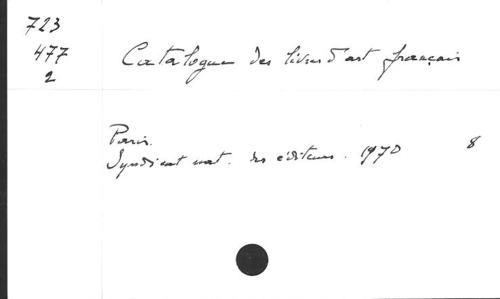 723
477
2
Catalogue des livres d'art français
Paris.
Syndicat nat. des éditeurs. 1970 8